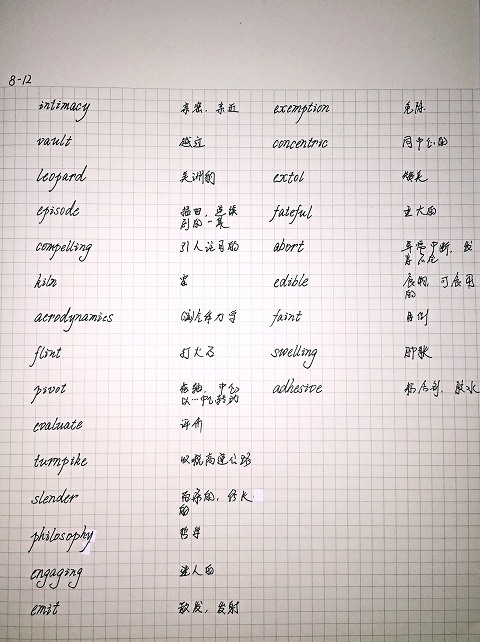 8-12
intimacy 亲密，亲近 exemption 免除
vault 越过 concentric 同中心的
leopard 美洲豹 extol 颂美
episode 插曲，连续
剧的一集 fateful 重大的
compelling 引人注目的 abort 异常中断，
kiln 窑 edible 食物，可食用
的
aerodynamics 空气动力学 faint 昏倒
flint 打火石 swelling 肿胀
pivot 枢轴，中心
以…中心转动 adhesive 粘合剂，胶水
evaluate 评价
turnpike 收税高速公路
slender 苗条的，修长
的
philosophy 哲学
engaging 迷人的
emit 散发，发射